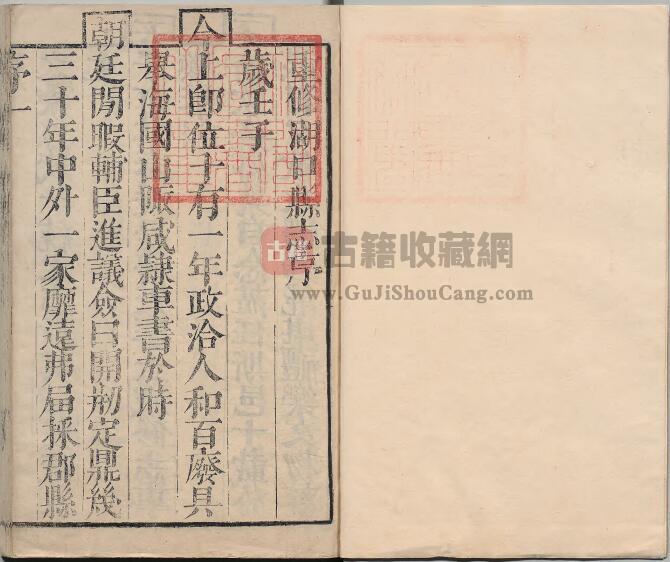 重修湖口縣志序
歲壬子
今上卽位十有一年政洽人和百廢具
舉海國山陬咸隸車書於時
朝廷閒暇輔臣進議僉曰開剏定鼎幾
三十年中外一家靡遠弗屆採郡縣
序一
古籍收藏网
www.GuJiShouCang.com